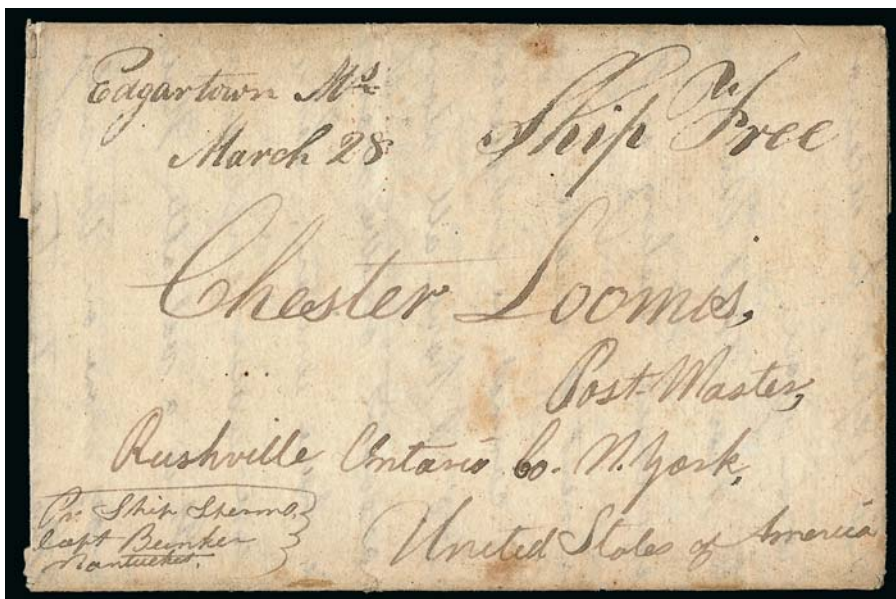 Edgartown Ms.
March 28
Ship Free
Chester Loomis,
Post-Master,
Rushville, Ontario Co. N. York,
United States of America
Pr. Ship
Capt Bunker
Nantucket.